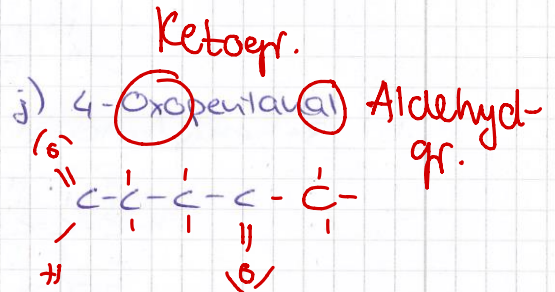 Ketogr.
j) 4-Oxopentanal Aldehyd-
gr.
O
C-C-C-C-C-
H O